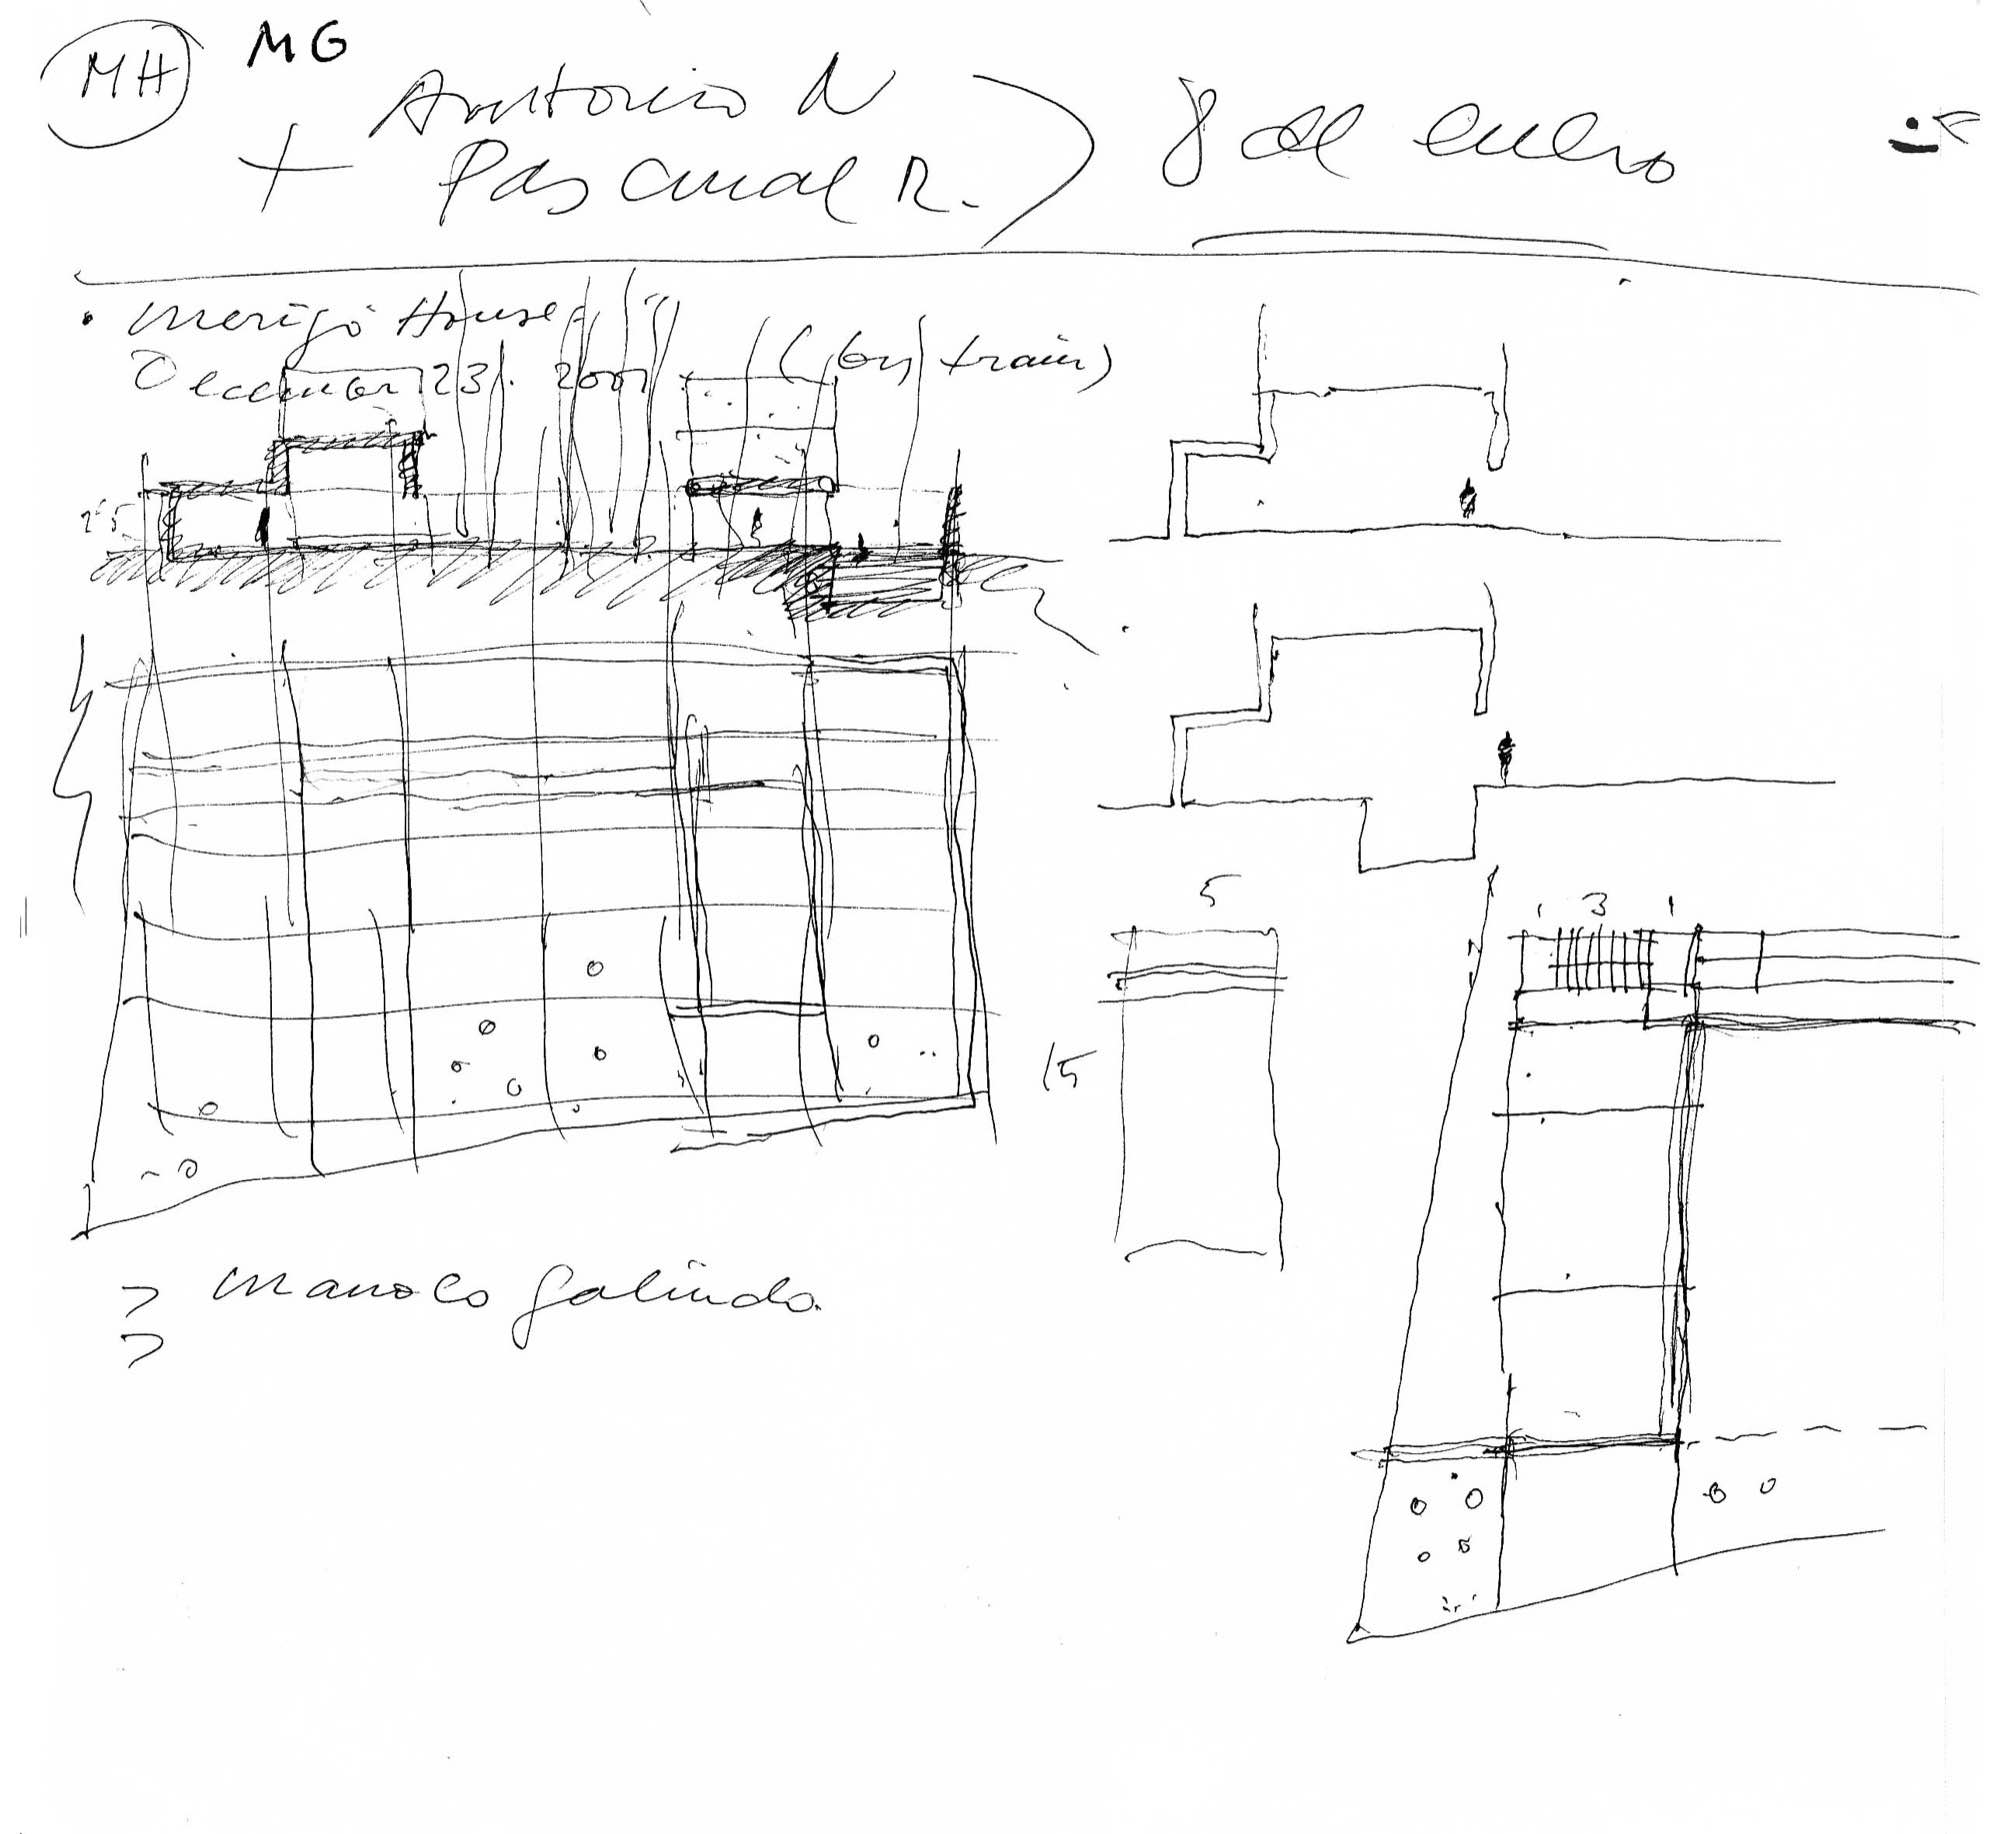 MH MG
+ Antonio N
Pascual R.
8 de enero
• Merigó House
December 23. 2001 (by train)
2'5
5
1 3 1
15
> Manolo Galindo.
>